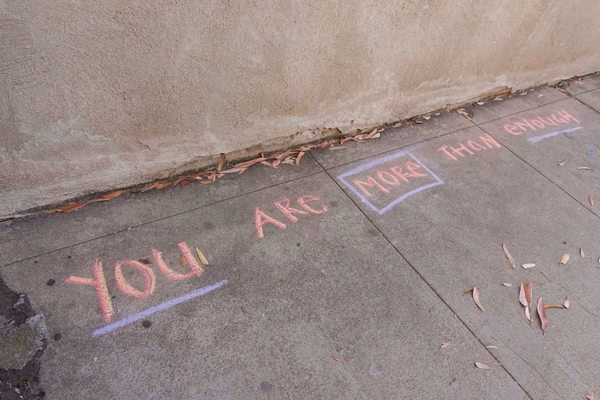 YOU ARE MORE THAN ENOUGH